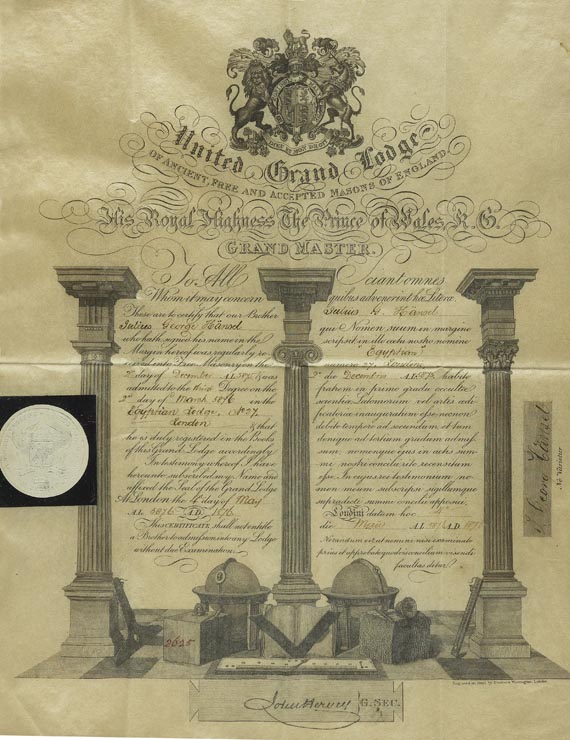 DIEU ET MON DROIT
United Grand Lodge
OF ANCIENT, FREE AND ACCEPTED MASONS OF ENGLAND
His Royal Highness The Prince of Wales, K.G.
GRAND MASTER.
To All
Whom it may concern
These are to certify that our Brother
Julius George Hänsel
who hath signed his name in the
Margin hereof was regularly re-
ceived into Free Masonry on the
day of December A.L. was
admitted to the third Degree on the
2nd day of March 5876 in the
Egyptian Lodge, No 27
London & that
he is duly registered in the Books
of this Grand Lodge accordingly
In testimony whereof I have
hereunto subscribed my Name and
affixed the Seal of the Grand Lodge
At London the 4th day of May
A.L. 5876 A.D. 1876
This CERTIFICATE shall not entitle
a Brother to admission into any Lodge
without due Examination.
Sciant omnes
quibus advenerint hæ Literæ
Julius G. Hänsel
qui Nomen suum in margine
scripsit in die actu nostro nomine
Egyptian
27 London
die December A.L. habitu
fratrem in primo gradu occulta
scientia Latomorum vel artis ædi-
ficatoriæ inauguratum esse necnon
debito tempore ad secundum et tum
denique ad tertium gradum admis-
sum nomenque ejus in actis sum-
mi nostri concilii rite recensitum
esse. In cujus rei testimonium no-
men meum subscripsi sigillumque
supradicti summi concilii apposui
Londini datum hoc
die Maii A.L. 5876 A.D. 1876
Notandum vero est nemini nisi examinato
prius et approbato quodvis concilium visendi
facultas detur.
Ne Varietur
2645
John Hervey G. SEC.